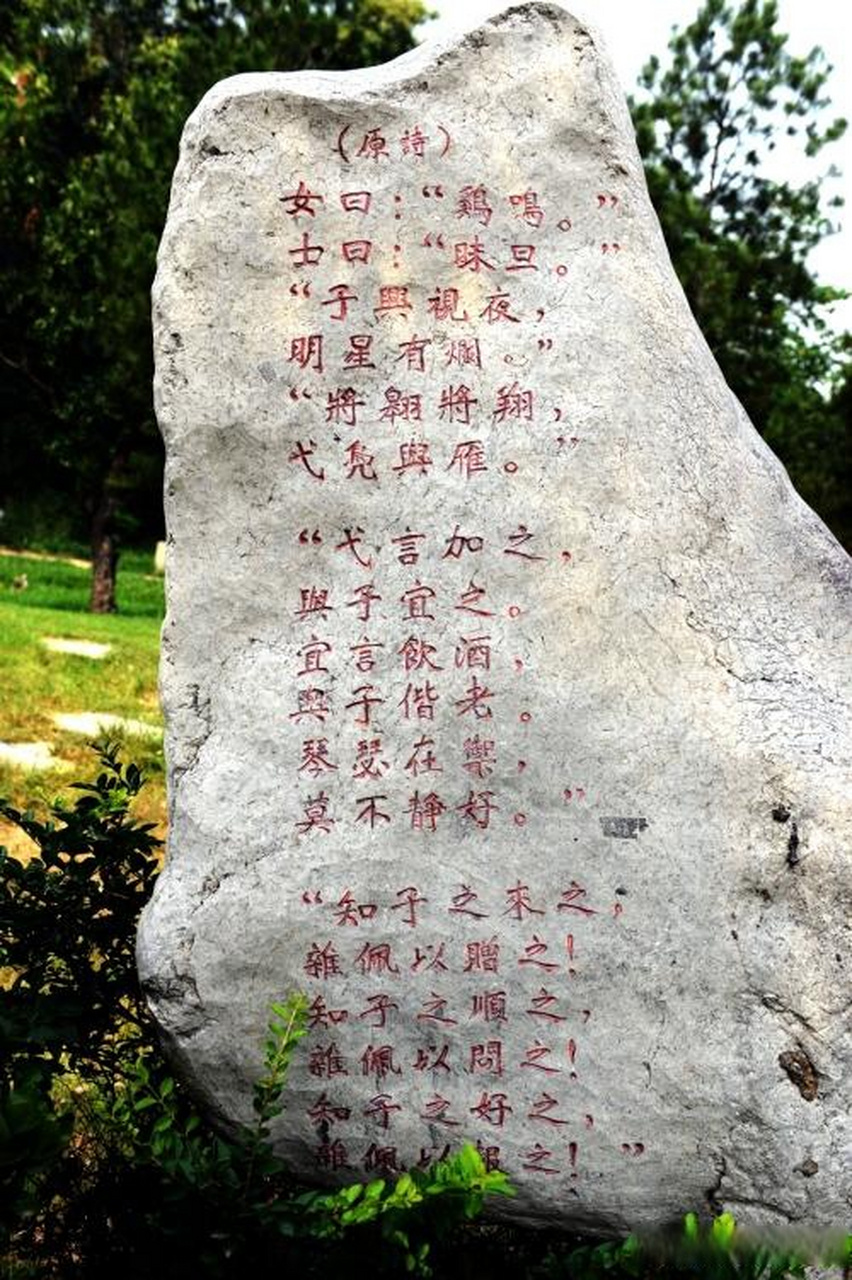 （原詩）
女曰：“鷄鳴。”
士曰：“昧旦。”
“子興視夜，
明星有爛。”
“將翱將翔，
弋鳧與雁。”
“弋言加之，
與子宜之。
宜言飲酒，
與子偕老。
琴瑟在禦，
莫不靜好。”
“知子之來之；
雜佩以贈之！
知子之順之，
雜佩以問之！
知子之好之，
雜佩以報之！”